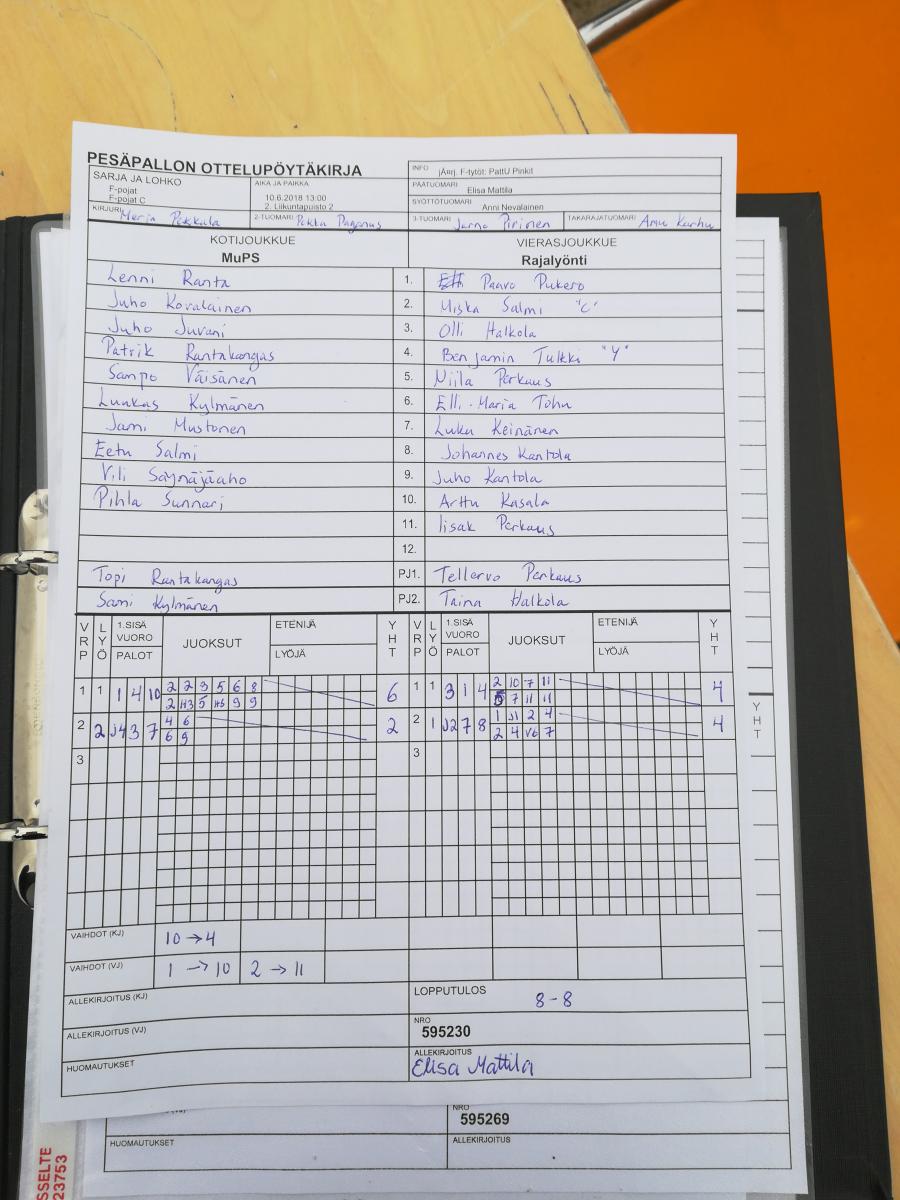 PESÄPALLON OTTELUPÖYTÄKIRJA
SARJA JA LOHKO
F-pojat
F-pojat C
AIKA JA PAIKKA
10.6.2018 13:00
2. Liikuntapuisto 2
INFO jÄrrj. F-tytöt: PattU Pinkit
PÄÄTUOMARI Elisa Mattila
SYÖTTÖTUOMARI Anni Nevalainen
KIRJURI Merja Pekkala 2-TUOMARI Pekka 3-TUOMARI Jarno Piirinen TAKARAJATUOMARI Anu Karhu
KOTIJOUKKUE VIERASJOUKKUE
MuPS Rajalyönti
Lenni Ranta 1. Paavo Pukero
Juho Kovalainen 2. Miska Salmi "C"
Juho Juvani 3. Olli Halkola
Patrik Rantakangas 4. Benjamin Tulkki "Y"
Sampo Väisänen 5. Niila Perkaus
Luukas Kylmänen 6. Elli-Maria Tohu
Jami Mustonen 7. Luka Keinänen
Eetu Salmi 8. Johannes Kantola
Vili Säynäjäaho 9. Juho Kantola
Pihla Sunnari 10. Arttu Kasala
11. Iisak Perkaus
12.
Topi Rantakangas PJ1. Tellervo Perkaus
Sami Kylmänen PJ2. Taina Halkola
VRP LYÖ 1.SISÄ VUORO PALOT JUOKSUT ETENIJÄ LYÖJÄ YHT VRP LYÖ 1.SISÄ VUORO PALOT JUOKSUT ETENIJÄ LYÖJÄ YHT
1 1 1 4 10 2 2 3 5 6 8 6 1 1 3 1 4 2 10 7 11 4
2 H3 5 H5 9 9 5 7 11 11
2 2 J4 3 7 4 6 2 2 1 J2 7 8 1 J1 2 4 4
6 9 2 4 V6 7
3 3
VAIHDOT (KJ) 10→4
VAIHDOT (VJ) 1 →10 2 → 11
ALLEKIRJOITUS (KJ) LOPPUTULOS 8-8
ALLEKIRJOITUS (VJ) NRO 595230
HUOMAUTUKSET ALLEKIRJOITUS Elisa Mattila
YHT
NRO
595269
HUOMAUTUKSET ALLEKIRJOITUS
SSELTE
23753